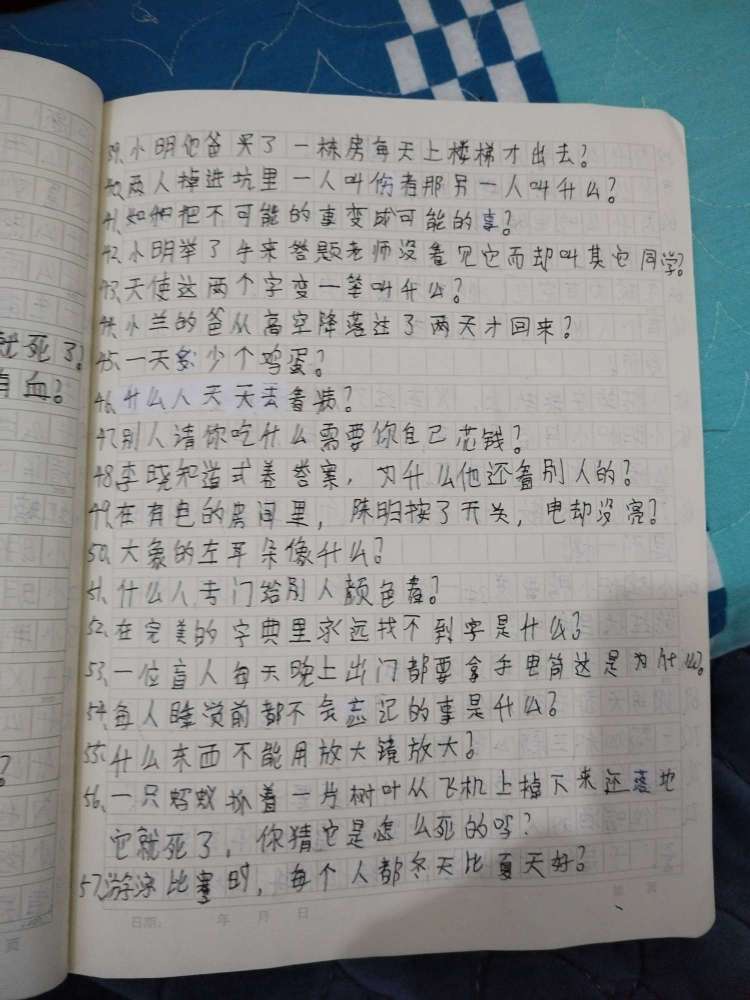 就死了?
有血?
39、小明他爸买了一栋房每天上楼梯才出去?
40、两人掉进坑里一人叫伤者那另一人叫什么?
41、如何把不可能的事变成可能的事?
42、小明举了手来答题老师没看见它而却叫其它同学?
43、天使这两个字变一笔叫什么?
44、小兰的爸从高空降落过了两天才回来?
45、一天多少个鸡蛋?
46、什么人天天去看病?
47、别人请你吃什么需要你自己花钱?
48、李晓和道式卷答案,为什么他还看别人的?
49、在有电的房间里,陈明按了开关,电却没亮?
50、大象的左耳朵像什么?
51、什么人专门给别人颜色看?
52、在完美的字典里永远找不到字是什么?
53、一位盲人每天晚上出门都要拿手电筒这是为什么?
54、每人睡觉前都不会忘记的事是什么?
55、什么东西不能用放大镜放大?
56、一只蚂蚁抓着一片树叶从飞机上掉下来还落地
它就死了,你猜它是怎么死的吗?
57、游泳比赛时,每个人都冬天比夏天好?
日期: 年 月 日
第 页
页